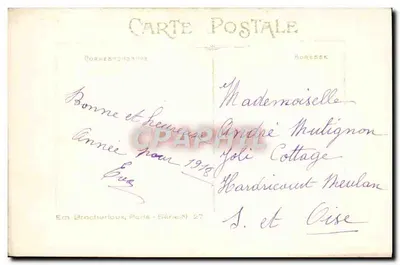 CARTE POSTALE
CORRESPONDANCE
ADRESSE
Bonne et heureuse
année pour 1918
Mademoiselle
André Mutignon
Joli Cottage
Hardricourt Meulan
S. et Oise
CPAPHIL